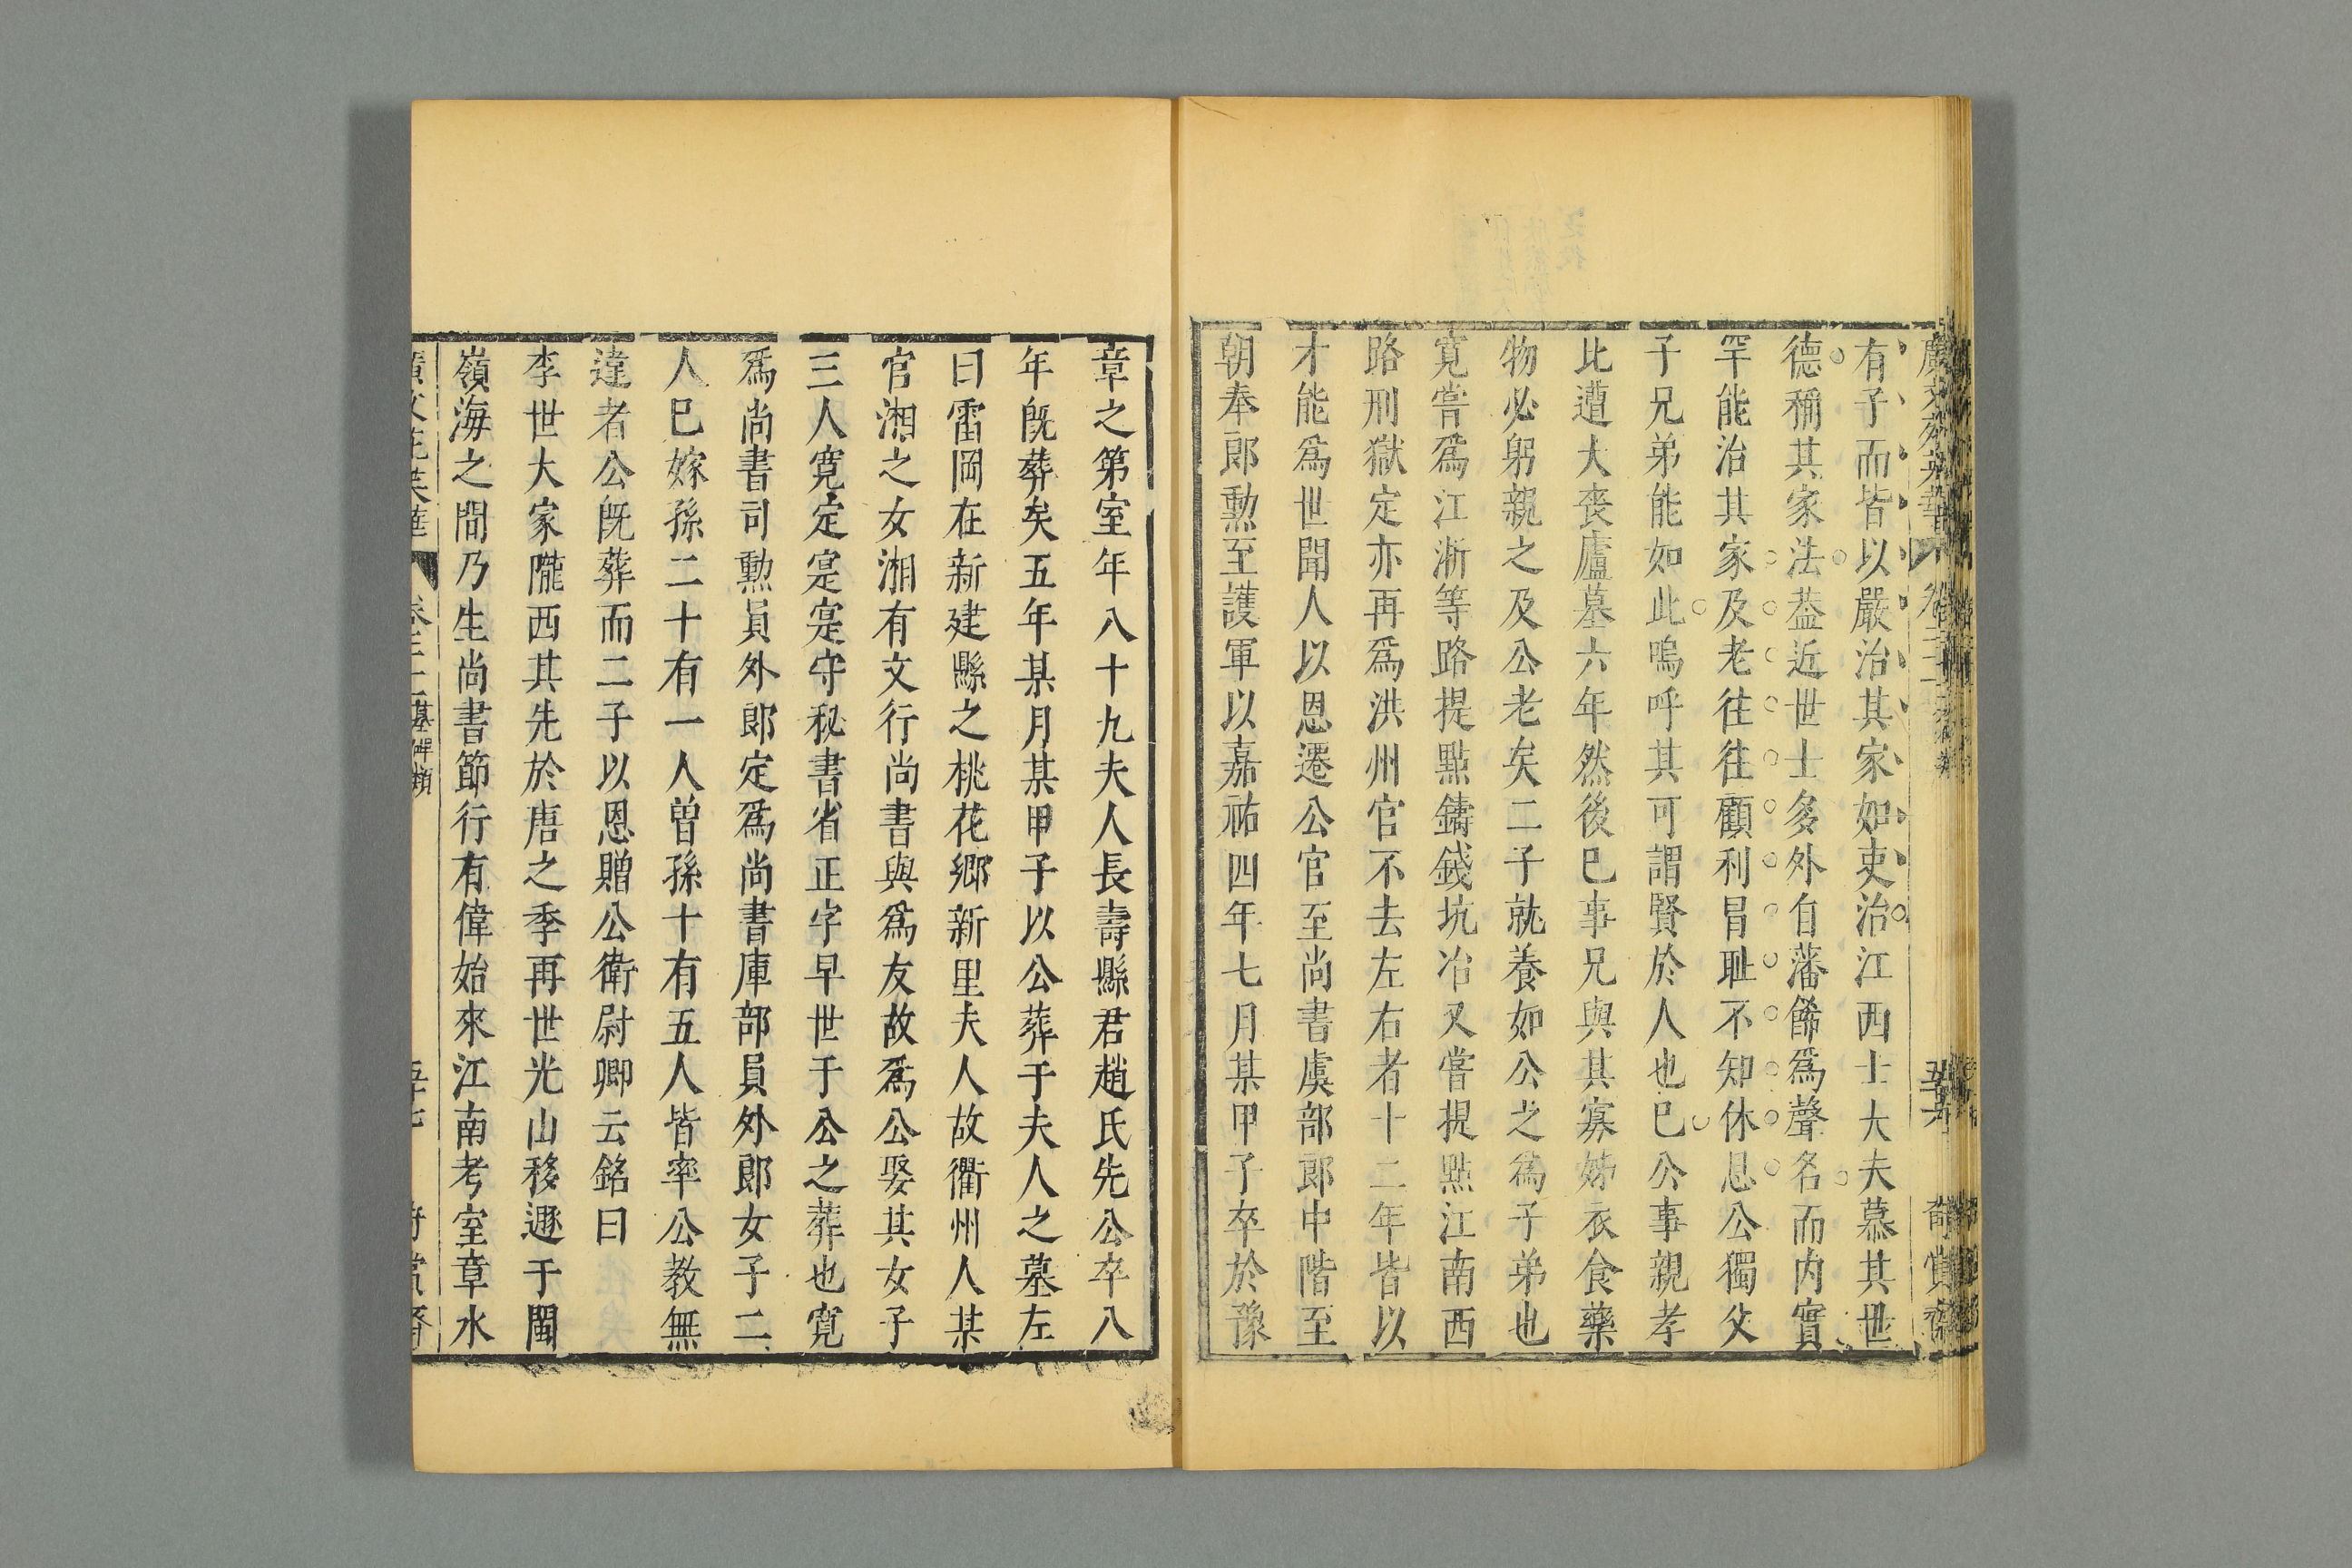 有子而皆以嚴治其家如吏治江西士大夫慕其世
德稱其家法葢近世士多外自藩餙爲聲名而内實
罕能治其家及老往往顧利冒耻不知休息公獨父
子兄弟能如此嗚呼其可謂賢於人也巳公事親孝
比遭大喪廬墓六年然後巳事兄與其寡姊衣食藥
物必躬親之及公老矣二子就養如公之爲子弟也
寛嘗爲江淛等路提點鑄錢坑冶又嘗提點江南西
路刑獄定亦再爲洪州官不去左右者十二年皆以
才能爲世聞人以恩遷公官至尚書虞部郎中階至
朝奉郎勲至護軍以嘉祐四年七月某甲子卒於豫
章之第室年八十九夫人長壽縣君趙氏先公卒八
年旣葬矣五年某月某甲子以公葬于夫人之墓左
曰雷岡在新建縣之桃花鄉新里夫人故衢州人某
官湘之女湘有文行尚書與爲友故爲公娶其女子
三人寛定寔寔守秘書省正字早世于公之葬也寛
爲尚書司勲員外郎定爲尚書庫部員外郎女子二
人巳嫁孫二十有一人曾孫十有五人皆率公教無
違者公旣葬而二子以恩贈公衛尉卿云銘曰
李世大家隴西其先於唐之季再世光山移遯于閩
嶺海之間乃生尚書節行有偉始來江南考室章水
廣文苑英華 墓碑類